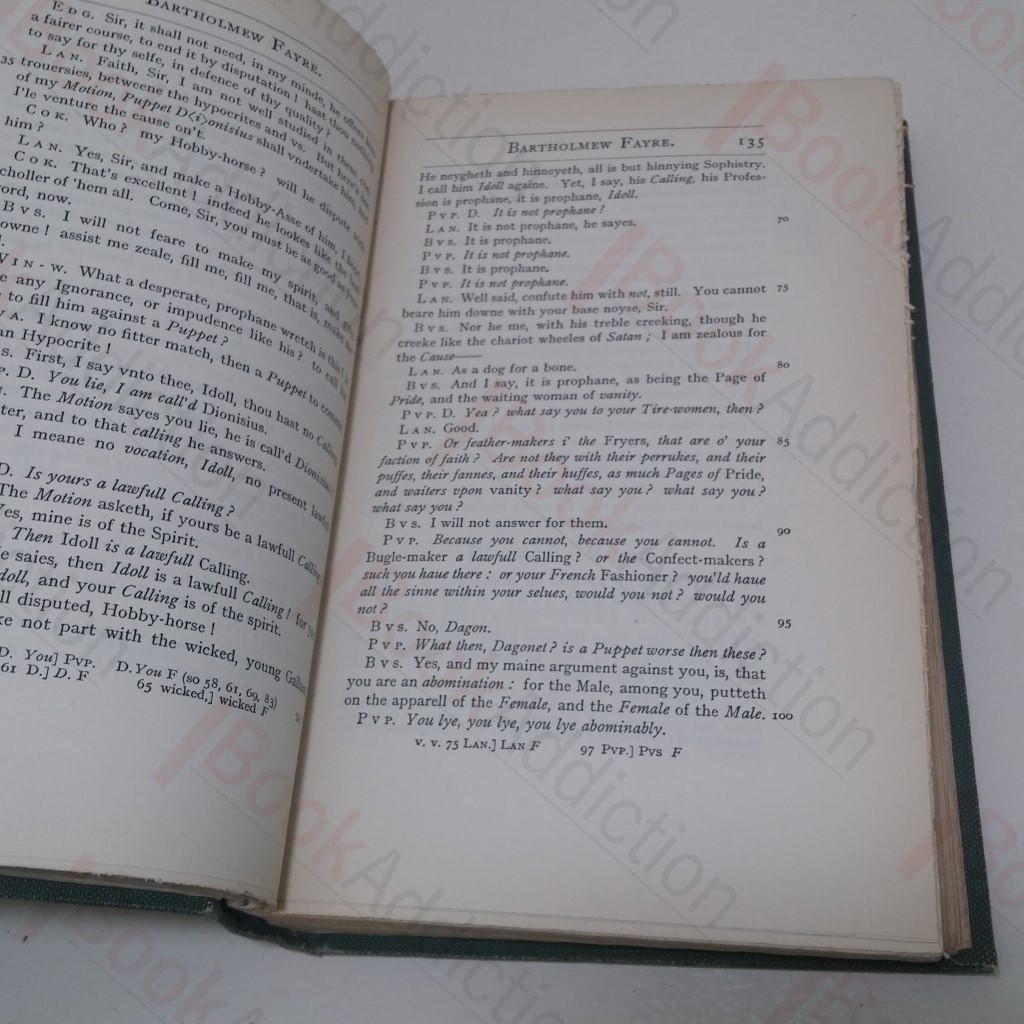 BARTHOLMEW FAYRE.
EDG. Sir, it shall not need, in my minde, he offers him
a fairer course, to end it by disputation! hast thou nothing
to say for thy selfe, in defence of thy quality?
LAN. Faith, Sir, I am not well studied in these
35 trouersies, betweene the hypocrites and vs. But here's one
of my Motion, Puppet D<i>onisius shall vndertake him, and
I'le venture the cause on't.
COK. Who? my Hobby-horse? will he dispute with
him?
LAN. Yes, Sir, and make a Hobby-Asse of him, I hope.
COK. That's excellent! indeed he lookes like the best
scholler of 'hem all. Come, Sir, you must be as good as your
word, now.
BVS. I will not feare to make my spirit, and gifts
knowne! assist me zeale, fill me, fill me, that is, make me
WIN-W. What a desperate, prophane wretch is this! is
any Ignorance, or impudence like his? to call his
to fill him against a Puppet?
VA. I know no fitter match, then a Puppet to commit
an Hypocrite!
s. First, I say vnto thee, Idoll, thou hast no Calling.
P. D. You lie, I am call'd Dionisius.
The Motion sayes you lie, he is call'd Dionisius
ter, and to that calling he answers.
I meane no vocation, Idoll, no present lawfull
D. Is yours a lawfull Calling?
The Motion asketh, if yours be a lawfull Calling.
Yes, mine is of the Spirit.
Then Idoll is a lawfull Calling.
e saies, then Idoll is a lawfull Calling! for you
doll, and your Calling is of the spirit.
ll disputed, Hobby-horse!
ke not part with the wicked, young Gallant
D. You] PVP. D. You F (so 58, 61, 69, 83)
61 D.] D. F 65 wicked,] wicked F
BARTHOLMEW FAYRE. 135
He neygheth and hinneyeth, all is but hinnying Sophistry.
I call him Idoll againe. Yet, I say, his Calling, his Profes-
sion is prophane, it is prophane, Idoll.
PVP. D. It is not prophane! 70
LAN. It is not prophane, he sayes.
BVS. It is prophane.
PVP. It is not prophane.
BVS. It is prophane.
PVP. It is not prophane.
LAN. Well said, confute him with not, still. You cannot 75
beare him downe with your base noyse, Sir.
BVS. Nor he me, with his treble creeking, though he
creeke like the chariot wheeles of Satan; I am zealous for
the Cause——
LAN. As a dog for a bone. 80
BVS. And I say, it is prophane, as being the Page of
Pride, and the waiting woman of vanity.
PVP. D. Yea? what say you to your Tire-women, then?
LAN. Good.
PVP. Or feather-makers i' the Fryers, that are o' your 85
faction of faith? Are not they with their perrukes, and their
puffes, their fannes, and their huffes, as much Pages of Pride,
and waiters vpon vanity? what say you? what say you?
what say you?
BVS. I will not answer for them. 90
PVP. Because you cannot, because you cannot. Is a
Bugle-maker a lawfull Calling? or the Confect-makers?
such you haue there: or your French Fashioner? you'ld haue
all the sinne within your selues, would you not? would you
not?
BVS. No, Dagon. 95
PVP. What then, Dagonet? is a Puppet worse then these?
BVS. Yes, and my maine argument against you, is, that
you are an abomination: for the Male, among you, putteth
on the apparell of the Female, and the Female of the Male. 100
PVP. You lye, you lye, you lye abominably.
V. v. 75 LAN.] LAN F 97 PVP.] PVS F
BookAddiction